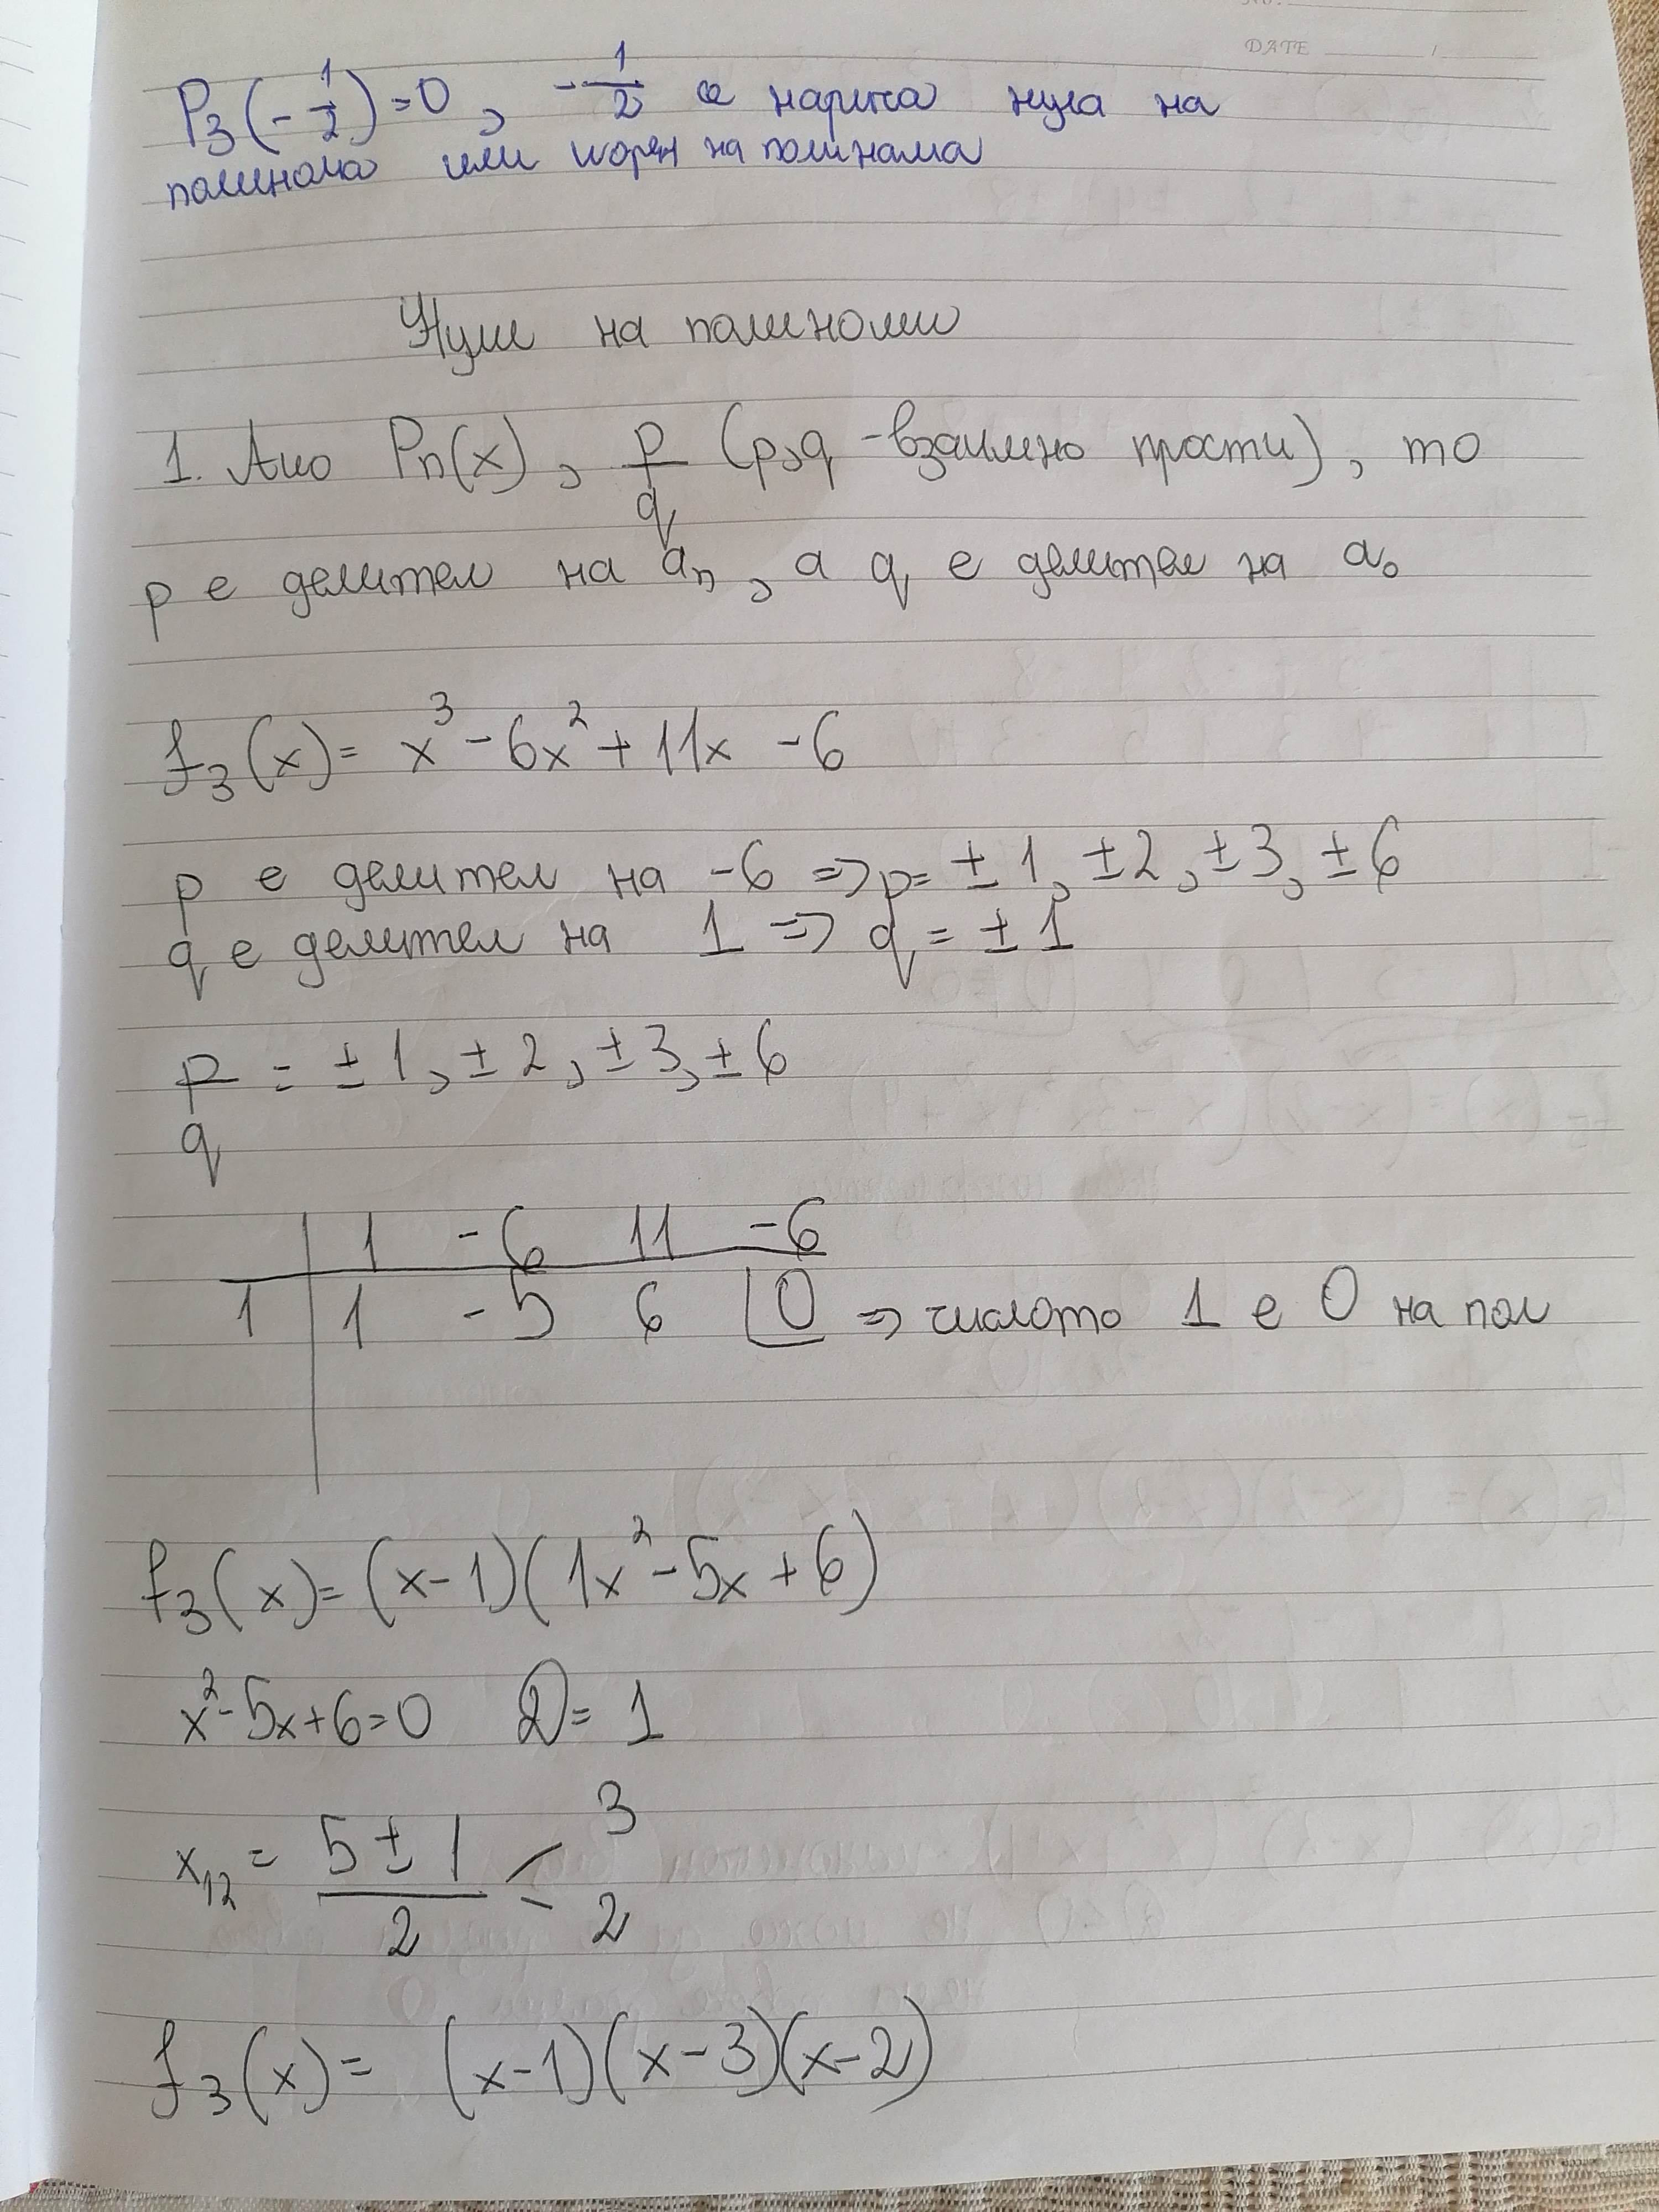 DATE
P₃(-1/2)=0, -1/2 се нарича нула на
полинома или корен на полинома
Нули на полиноми
1. Ако Pn(x), p/q (p,q - взаимно прости), то
p е делител на an, а q е делител на a₀
f₃(x)= x³-6x²+11x-6
p е делител на -6 => p= ±1, ±2, ±3, ±6
q е делител на 1 => q = ±1
p/q = ±1, ±2, ±3, ±6
1 -6 11 -6
1 1 -5 6 0 => числото 1 е 0 на пол
f₃(x)=(x-1)(1x²-5x+6)
x²-5x+6=0 D=1
x₁₂ = (5±1)/2 < 3 2
f₃(x)= (x-1)(x-3)(x-2)